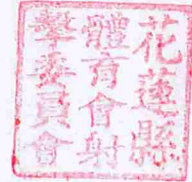 花蓮縣
體育會射
擊委員會